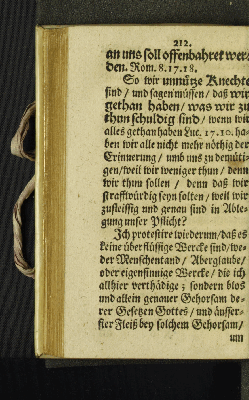 212.
an uns soll offenbahret wer⸗
den. Rom. 8. 17. 18.
So wir unnütze Knechte
sind / und sagen müssen / daß wir
gethan haben / was wir zu
thun schuldig sind / wenn wir
alles gethan haben Luc. 17. 10. ha⸗
ben wir alle nicht mehr nöthig der
Erinnerung / umb uns zu demüti⸗
gen / weil wir weniger thun / denn
wir thun sollen / denn daß wir
straffwürdig seyn solten / weil wir
zu fleissig und genau sind in Able⸗
gung unser Pflicht?
Ich protestire wiederum / daß es
keine überflüssige Wercke sind / we⸗
der Menschentand / Aberglaube /
oder eigensinnige Wercke / die ich
allhier verthädige; sondern blos
und allein genauer Gehorsam de⸗
rer Gesetzen Gottes / und äusser⸗
ster Fleiß bey solchem Gehorsam /
um